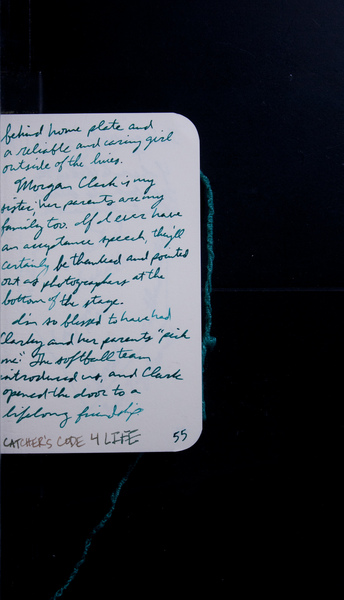 behind home plate and
a reliable and caring girl
outside of the lines.
Morgan Clark is my
sister; her parents are my
family too. If I ever have
an acceptance speech, they'll
certainly be thanked and pointed
out as photographers at the
bottom of the stage.
I'm so blessed to have had
Clarkey and her parents "pick
me." The softball team
introduced us, and Clark
opened the door to a
lifelong friendship
CATCHER'S CODE 4 LIFE 55